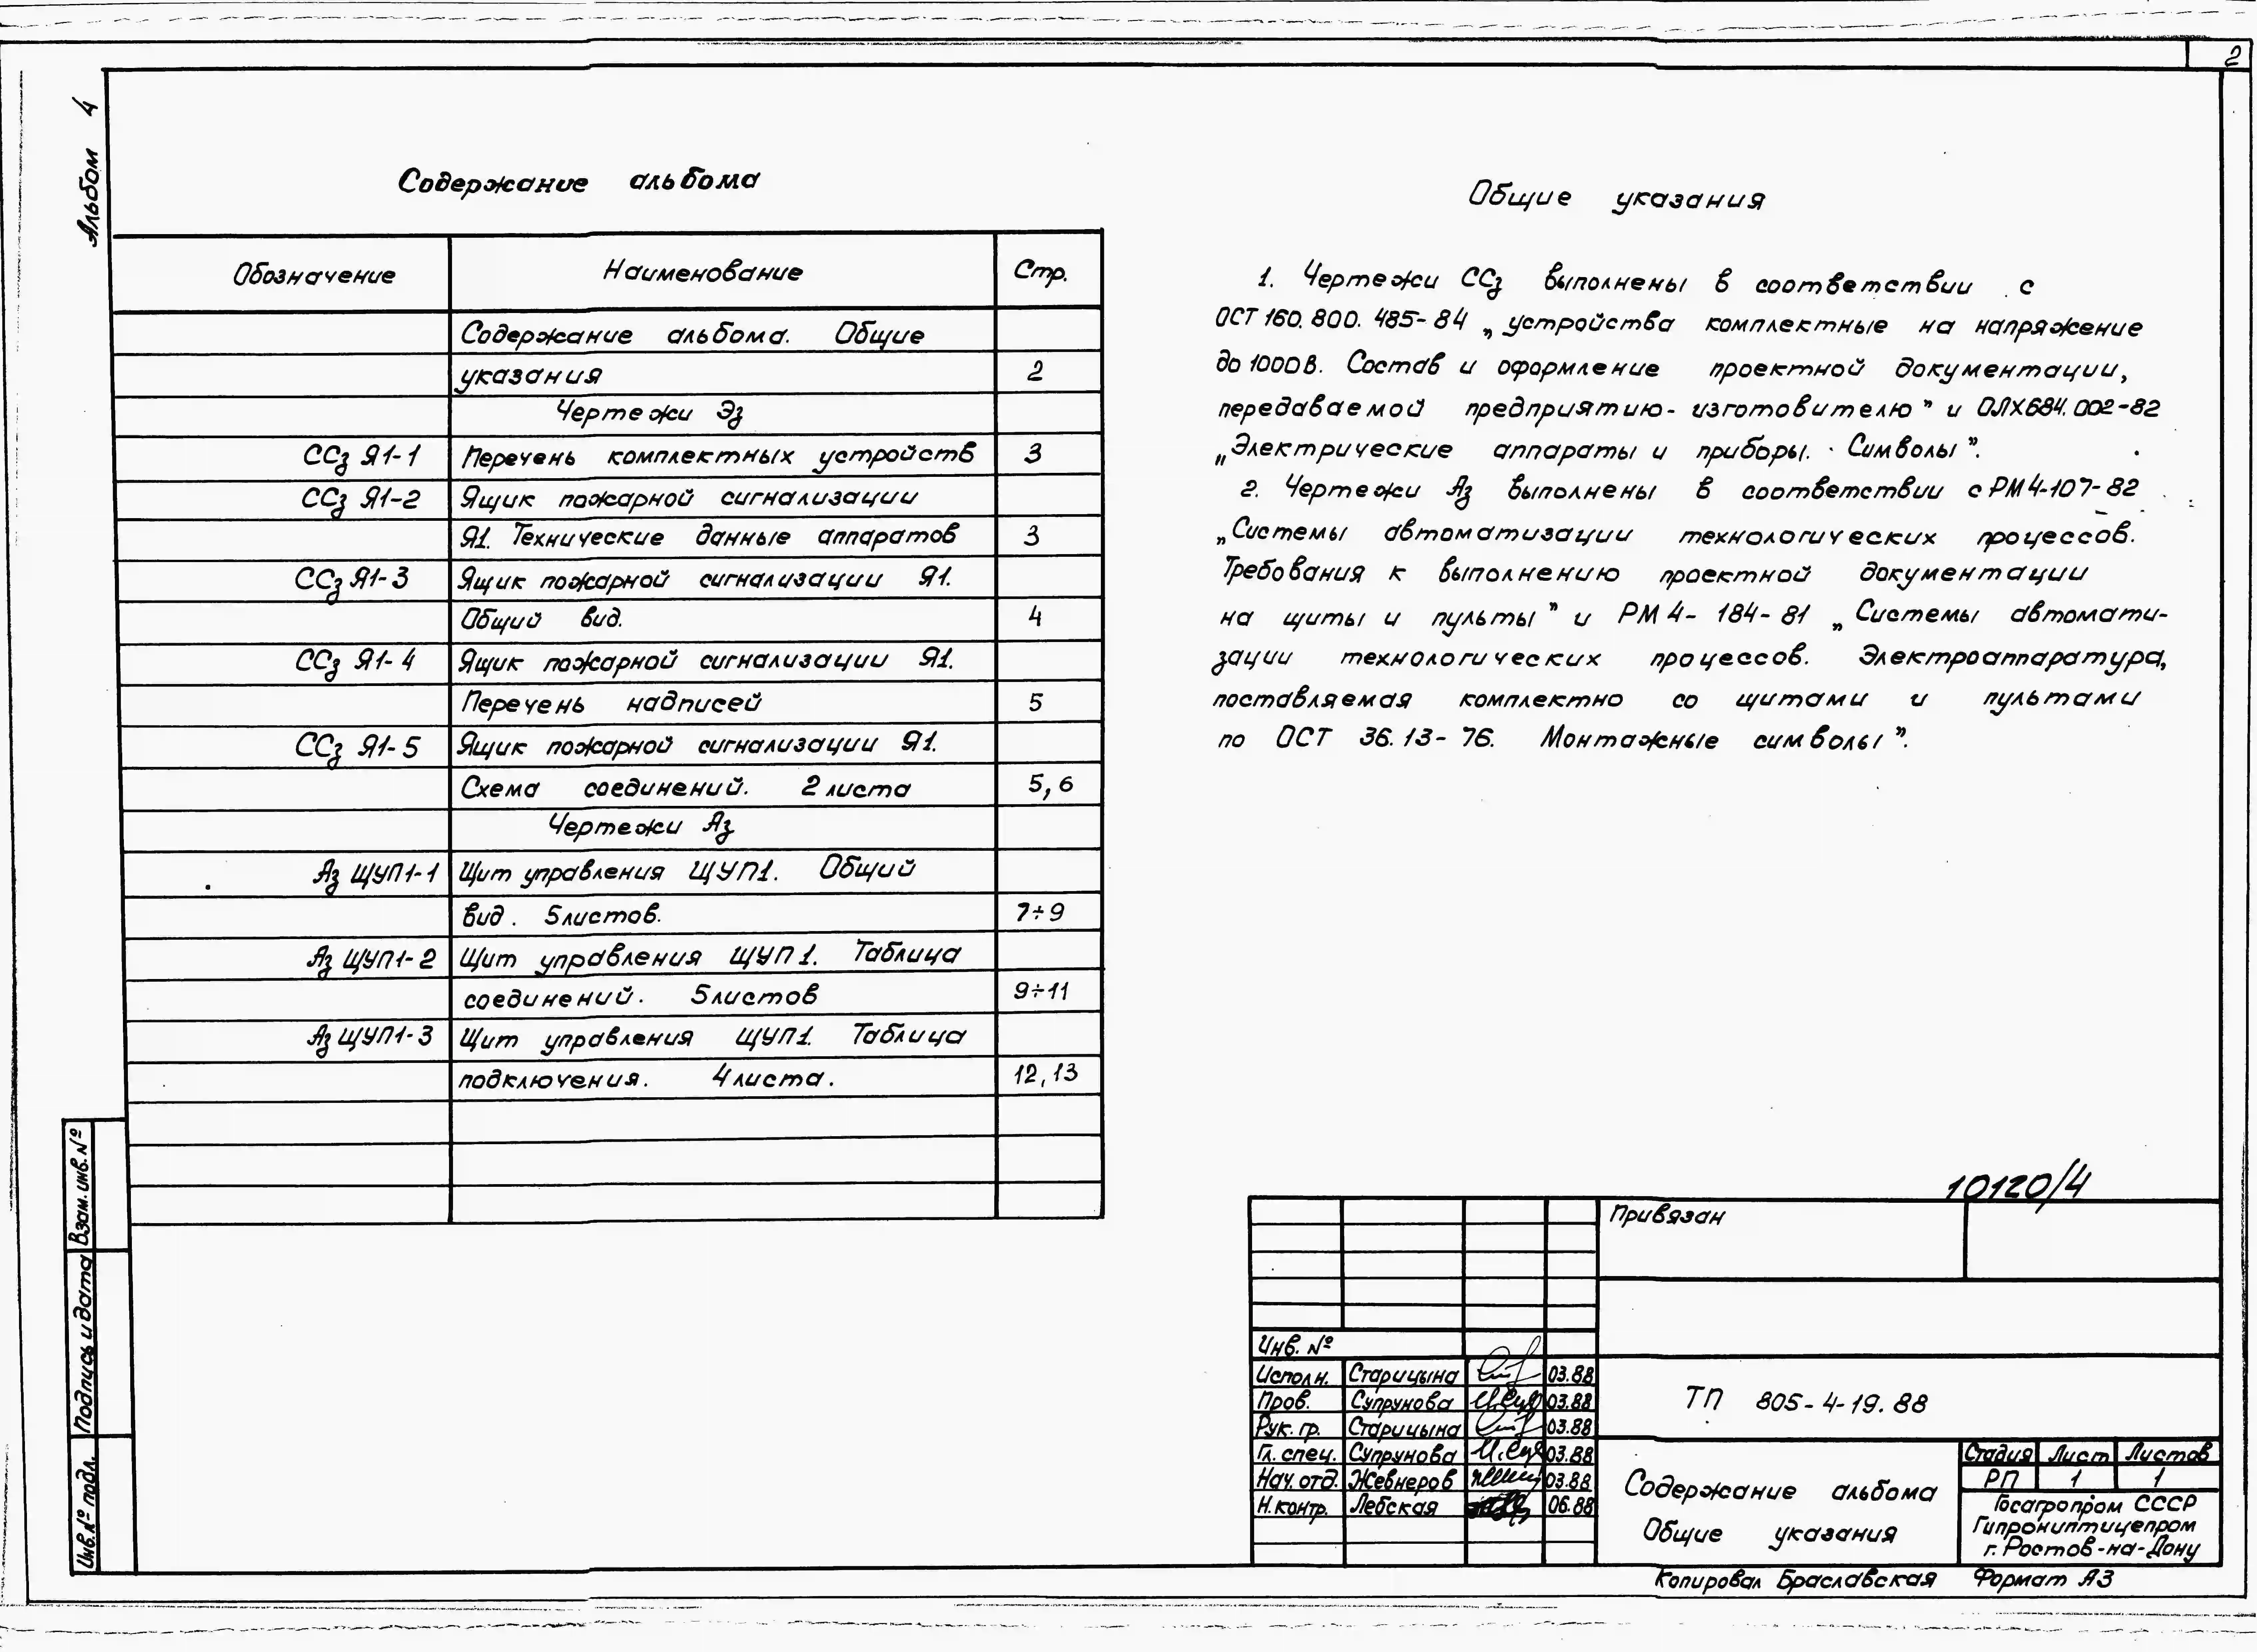 2
Альбом 4
Содержание альбома
Обозначение Наименование Стр.
Содержание альбома. Общие
указания 2
Чертежи Эз
ССз Я1-1 Перечень комплектных устройств 3
ССз Я1-2 Ящик пожарной сигнализации
Я1. Технические данные аппаратов 3
ССз Я1-3 Ящик пожарной сигнализации Я1.
Общий вид. 4
ССз Я1-4 Ящик пожарной сигнализации Я1.
Перечень надписей 5
ССз Я1-5 Ящик пожарной сигнализации Я1.
Схема соединений. 2 листа 5,6
Чертежи Аз
Аз ЩУП1-1 Щит управления ЩУП1. Общий
вид. 5листов. 7÷9
Аз ЩУП1-2 Щит управления ЩУП1. Таблица
соединений. 5листов 9÷11
Аз ЩУП1-3 Щит управления ЩУП1. Таблица
подключения. 4листа. 12,13
Общие указания
1. Чертежи ССз выполнены в соответствии с
ОСТ 160.800.485-84 „устройства комплектные на напряжение
до 1000В. Состав и оформление проектной документации,
передаваемой предприятию-изготовителю” и ОЛХ684.002-82
„Электрические аппараты и приборы. Символы”.
2. Чертежи Аз выполнены в соответствии с РМ4-107-82
„Системы автоматизации технологических процессов.
Требования к выполнению проектной документации
на щиты и пульты” и РМ4-184-81 „Системы автомати-
зации технологических процессов. Электроаппаратура,
поставляемая комплектно со щитами и пультами
по ОСТ 36.13-76. Монтажные символы”.
Взам. инв. №
Подпись и дата
Инв. № подл.
10120/4
Привязан
Инв. №
Исполн. Старицына 03.88
Пров. Супрунова 03.88
Рук. гр. Старицына 03.88
Гл. спец. Супрунова 03.88
Нач. отд. Жевнеров 03.88
Н. контр. Лебская 06.88
ТП 805-4-19.88
Содержание альбома
Общие указания
Стадия Лист Листов
РП 1 1
Госагропром СССР
Гипрониптицепром
г. Ростов-на-Дону
Копировал Браславская Формат А3